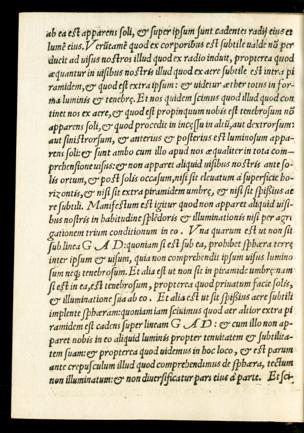 ab ea est apparens soli, & super ipsum sunt cadentes radij eius et
lumē eius. Verūtamē quod ex corporibus est subtile ualde nō per
ducit ad uisus nostros illud quod ex radio induit, propterea quod
æquantur in uisibus nostris illud quod ex aere subtile est intra pi
ramidem, & quod est extra ipsum: & uidetur æther totus in for-
ma luminis & tenebre. Et nos quidem scimus quod illud quod con
tinet nos ex aere, & quod est propinquum nobis est tenebrosum nō
apparens soli, & quod procedit in incessu in altū, aut dextrorsum:
aut sinistrorsum, & anterius & posterius est luminosum appa-
rens soli: & sunt ambo cum illo apud nos æqualiter in tota com-
prehensione uisus: & non apparet aliquid uisibus nostris ante so-
lis ortum, & post solis occasum, nisi sit eleuatum a superficie ho-
rizontis, & nisi sit extra piramidem umbre, & nisi sit spissius ae
re subtili. Manifestum est igitur quod non apparet aliquid uisi-
bus nostris in habitudine splēdoris & illuminationis nisi per agri
gationem trium conditionum in eo. Vna quarum est ut non sit
sub linea G A D: quoniam si est sub ea, prohibet sphæra terre
inter ipsum & uisum, quia non comprehendit ipsum uisus lumino
sum neq; tenebrosum. Et alia est ut non sit in piramide umbre; nam
si est in ea, est tenebrosum, propterea quod priuatum facie solis,
& illuminatione sua ab eo. Et alia est ut sit spissius aere subtili
implente sphæram: quoniam iam sciuimus quod aer altior extra pi
ramidem est cadens super lineam G A D: & cum illo non ap-
paret nobis in eo aliquid luminis propter tenuitatem & subtilita-
tem suam: & propterea quod uidemus in hoc loco, & est parum
ante crepusculum illud quod comprehendimus de sphæra, tectum
non illuminatum: & non diuersificatur pars eius a parte. Et sci-